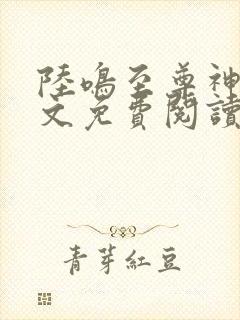 陸鳴至尊神
文免費閱讀
青芽紅豆